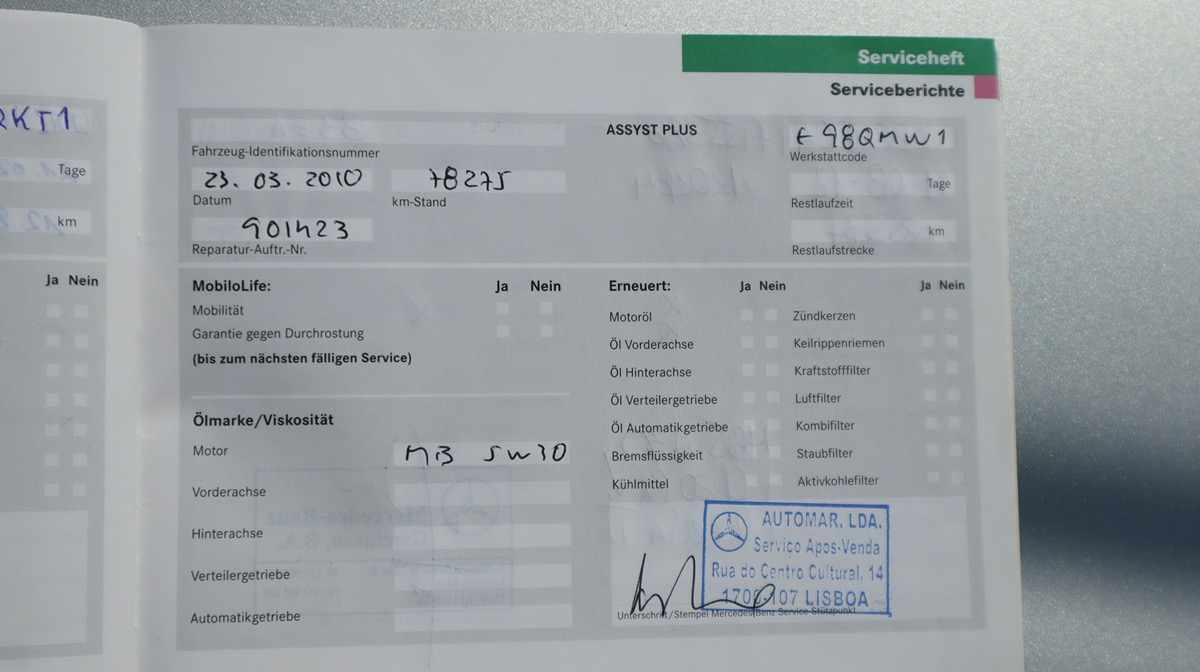 Serviceheft
Serviceberichte
RKT1
Tage
km
Ja Nein
Fahrzeug-Identifikationsnummer
23. 03. 2010
78275
Datum
km-Stand
901423
Reparatur-Auftr.-Nr.
ASSYST PLUS
E98QMW1
Werkstattcode
Tage
Restlaufzeit
km
Restlaufstrecke
MobiloLife: Ja Nein
Mobilität
Garantie gegen Durchrostung
(bis zum nächsten fälligen Service)
Ölmarke/Viskosität
Motor MB 5W30
Vorderachse
Hinterachse
Verteilergetriebe
Automatikgetriebe
Erneuert: Ja Nein Ja Nein
Motoröl Zündkerzen
Öl Vorderachse Keilrippenriemen
Öl Hinterachse Kraftstofffilter
Öl Verteilergetriebe Luftfilter
Öl Automatikgetriebe Kombifilter
Bremsflüssigkeit Staubfilter
Kühlmittel Aktivkohlefilter
AUTOMAR, LDA.
Serviço Apos-Venda
Rua do Centro Cultural, 14
1700-107 LISBOA
Unterschrift/Stempel Mercedes-Benz Service-Stützpunkt